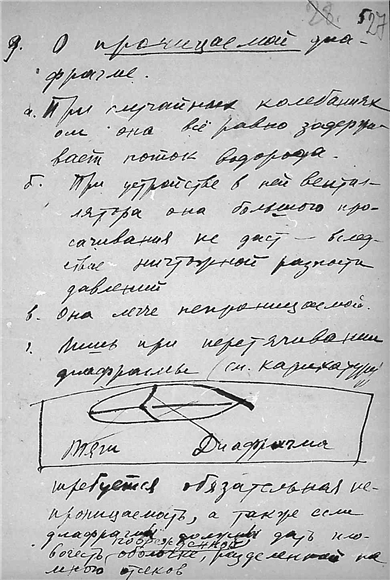 28. 527
9. О проницаемой диа-
фрагме.
а. При случайных колебаниях
ом она всё равно задержи-
вает поток водорода.
б. При устройстве в ней венти-
лятора она большого про-
сачивания не даст — вслед-
ствие ничтожной разности
давлений
в. Она легче непроницаемой.
г. Лишь при перетягивании
диафрагмы (см. карикатуру)
Тяги Диафрагма
требуется обязательная не-
проницаемость, а также если
диафрагмы должны дать плов-
учесть поврежденной
оболочке, разделенной на
много отсеков